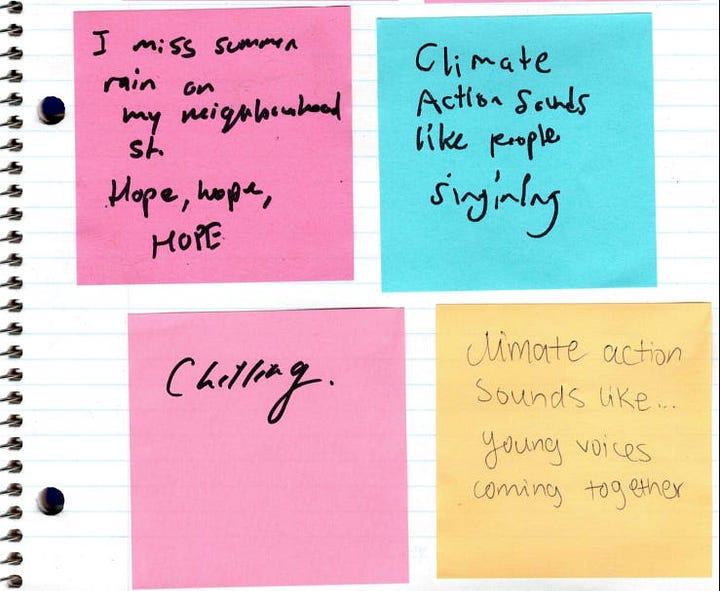 I miss summer
rain on
my neighbourhood
st.
Hope, hope,
HOPE
Climate
Action Sounds
like people
singining
Chilling.
climate action
sounds like...
young voices
coming together